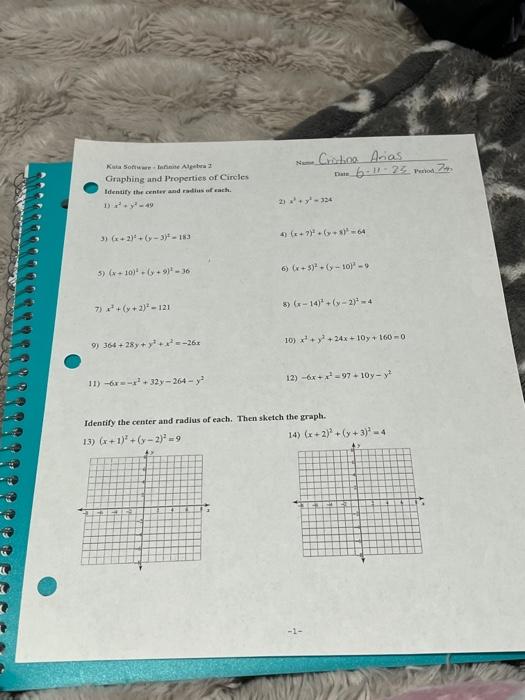 Kuta Software - Infinite Algebra 2
Name Cristina Arias
Graphing and Properties of Circles
Date 6-11-23 Period
Identify the center and radius of each.
1) x² + y² = 49
2) x² + y² = 324
3) (x + 2)² + (y − 3)² = 183
4) (x + 7)² + (y + 8)² = 64
5) (x + 10)² + (y + 9)² = 36
6) (x + 5)² + (y − 10)² = 9
7) x² + (y + 2)² = 121
8) (x − 14)² + (y − 2)² = 4
9) 364 + 28y + y² + x² = −26x
10) x² + y² + 24x + 10y + 160 = 0
11) −6x = −x² + 32y − 264 − y²
12) −6x + x² = 97 + 10y − y²
Identify the center and radius of each. Then sketch the graph.
13) (x + 1)² + (y − 2)² = 9
14) (x + 2)² + (y + 3)² = 4
y
y
x
x
-1-